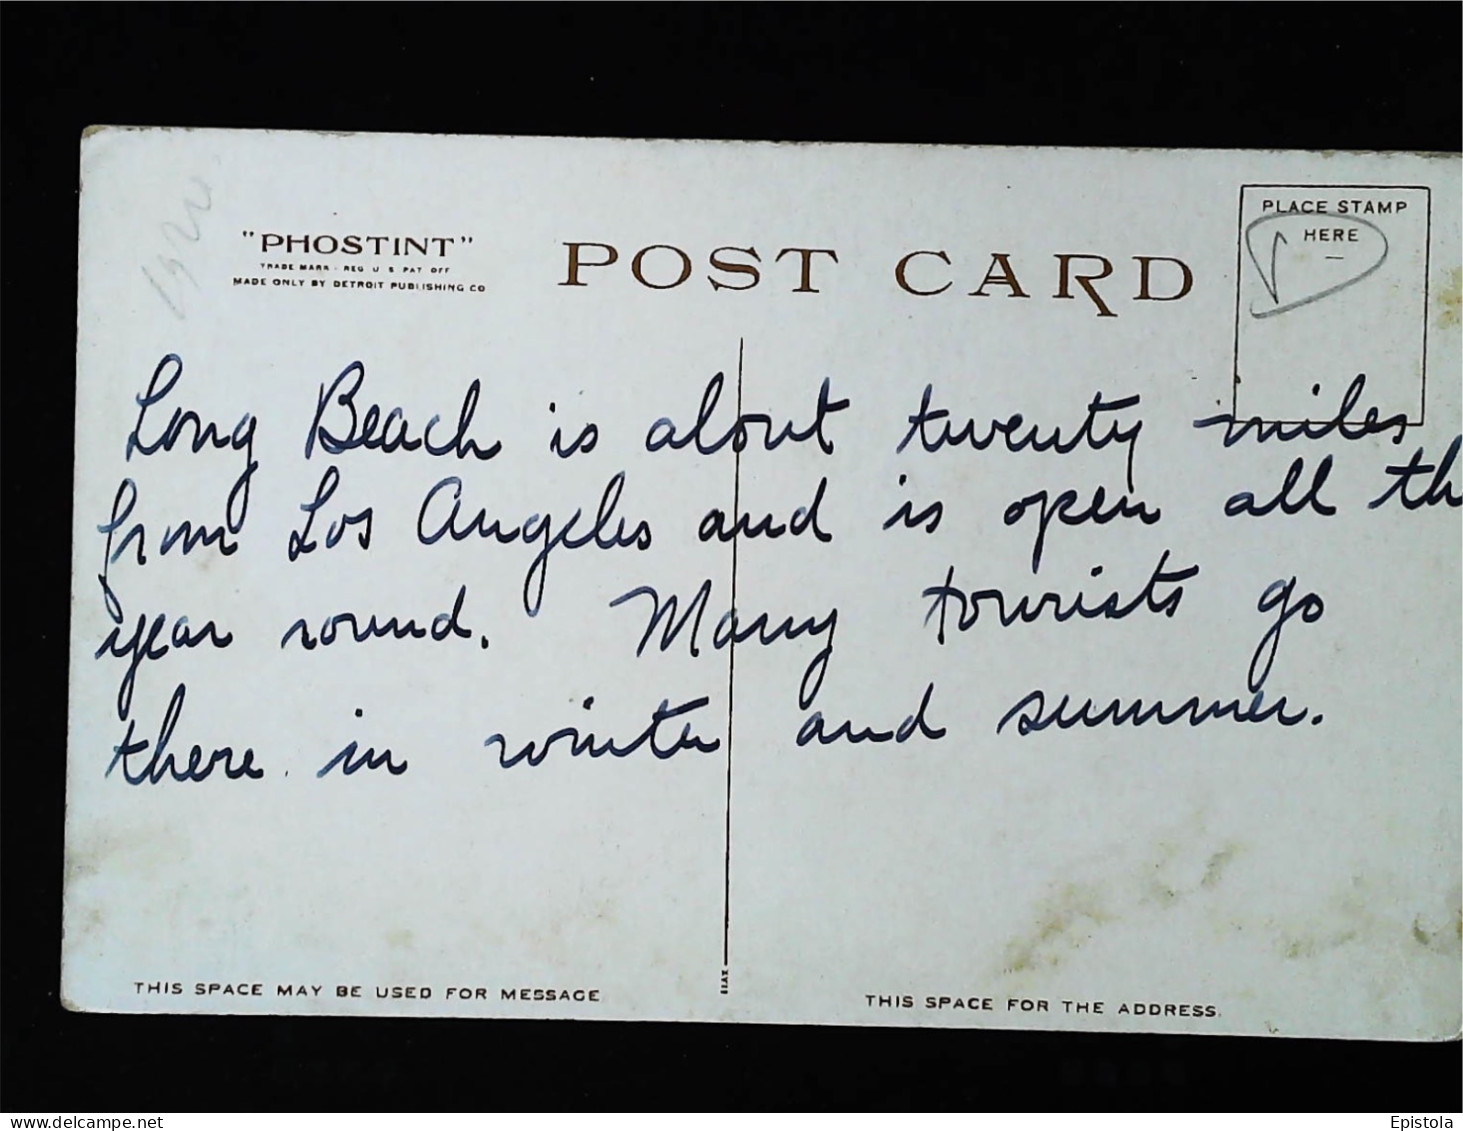 PLACE STAMP
HERE
"PHOSTINT"
TRADE MARK · REG U S PAT OFF
MADE ONLY BY DETROIT PUBLISHING CO
POST CARD
Long Beach is about twenty miles
from Los Angeles and is open all th
year round. Many tourists go
there in winter and summer.
THIS SPACE MAY BE USED FOR MESSAGE
THIS SPACE FOR THE ADDRESS.
delcampe.net
Epistola